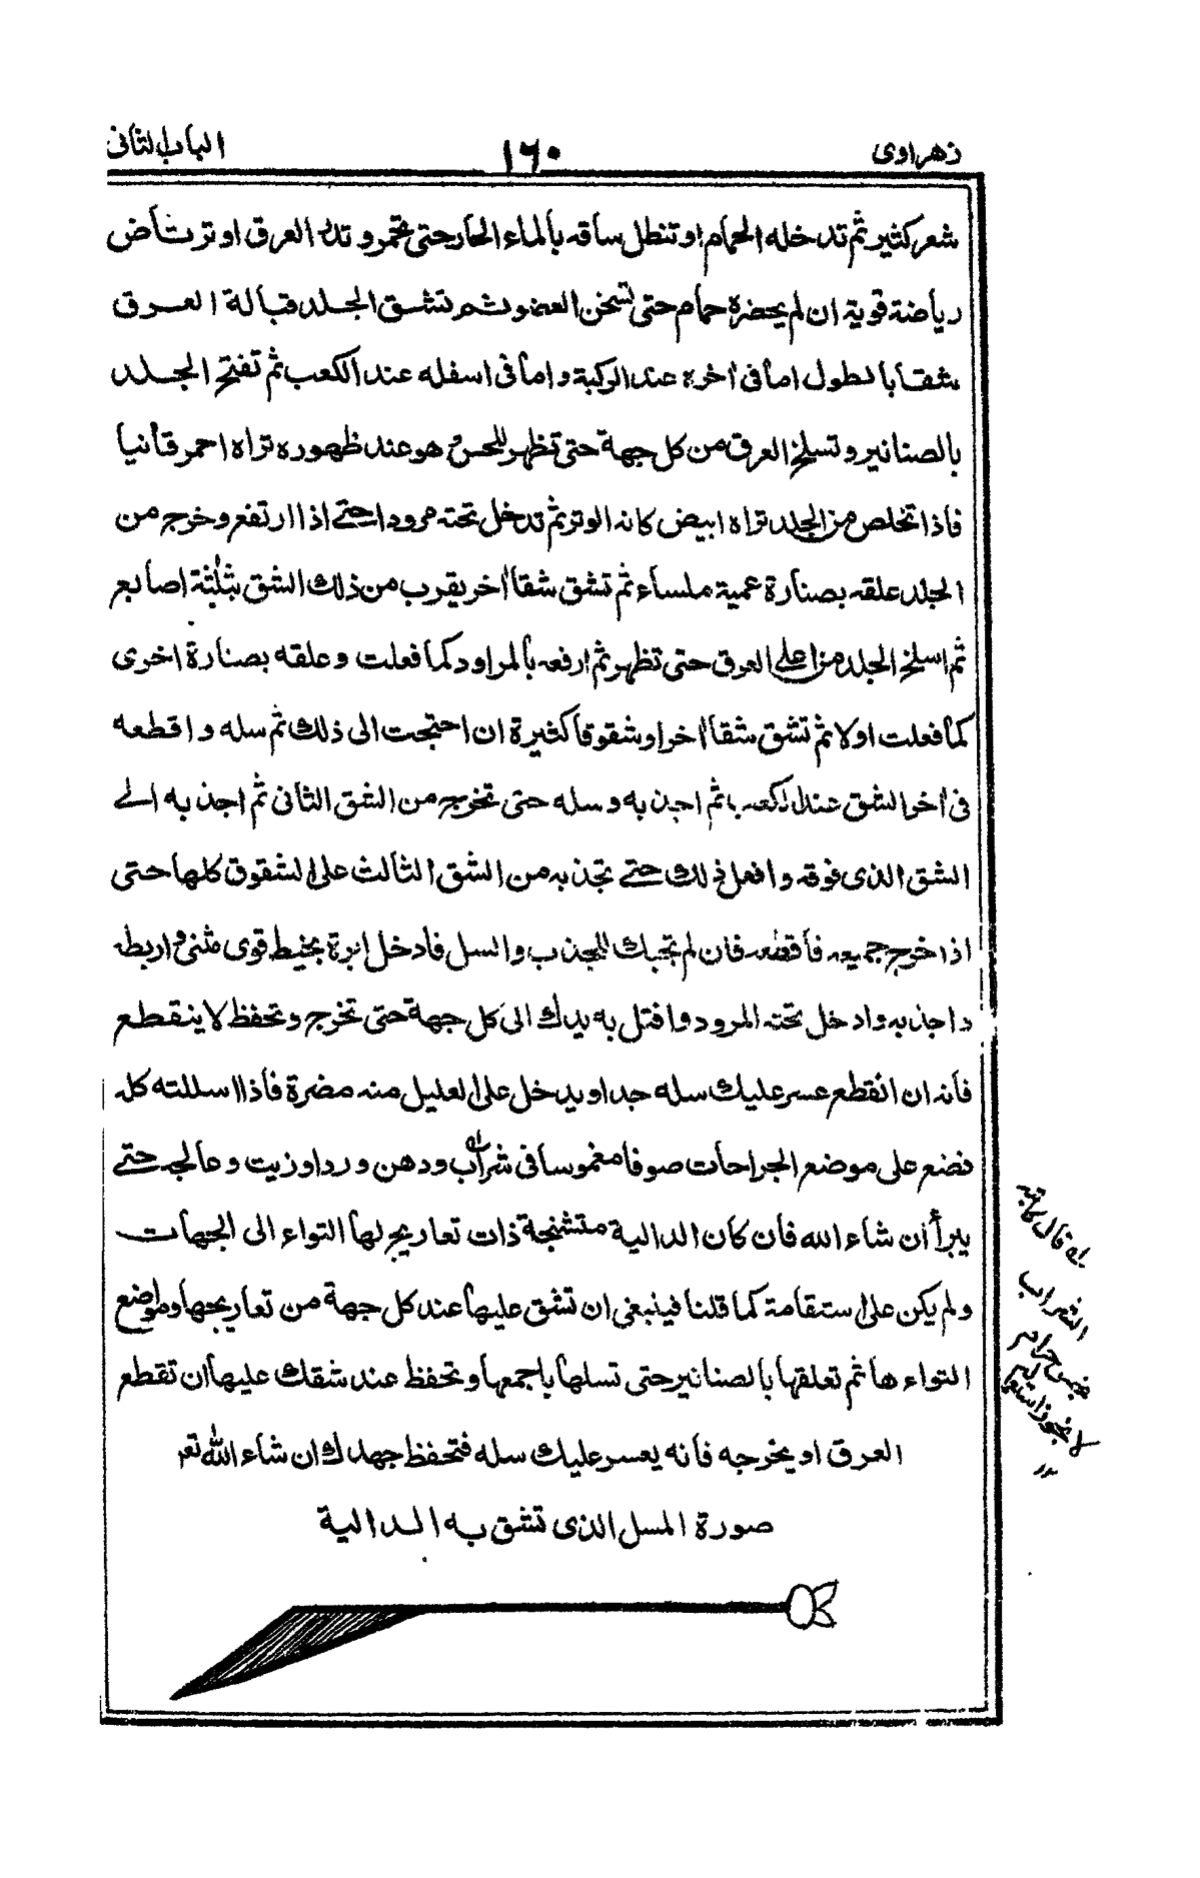 زهراوى
١٦٠
الباب الثانى
شعر كثير ثم تدخله الحمام او تنطل ساقه بالماء الحار حتى يحمر و تدر العرق او ترتاض
رياضة قوية ان لم يحضره حمام حتى تسخن العضو ثم تشق الجلد قبالة العرق
شقا بالطول اما فى اخره عند الركبة واما فى اسفله عند الكعب ثم تفتح الجلد
بالصنانير وتسلخ العرق من كل جهة حتى تظهر للحس و هو عند ظهوره تراه احمر قانيا
فاذا تخلص من الجلد تراه ابيض كانه الوتر ثم تدخل تحته مرودا حتى اذا ارتفع وخرج من
الجلد علقه بصنارة عمية ملساء ثم تشق شقا اخر يقرب من ذلك الشق بثلثة اصابع
ثم اسلخ الجلد من اعلى العرق حتى تظهر ثم ارفعه بالمراود كما فعلت وعلقه بصنارة اخرى
كما فعلت اولا ثم تشق شقا اخر او شقوقا كثيرة ان احتجت الى ذلك ثم سله واقطعه
فى اخر الشق عند الكعب ثم اجذبه وسله حتى تخرج من الشق الثانى ثم اجذبه الى
الشق الذى فوقه وافعل ذلك حتى تجذبه من الشق الثالث على الشقوق كلها حتى
اذا خرج جميعه فاقطعه فان لم تجبك للجذب والسل فادخل ابرة بخيط قوى مثنى و اربطه
واجذبه وادخل تحته المرود وافتل به يدك الى كل جهة حتى تخرج وتحفظ لا ينقطع
فانه ان انقطع عسر عليك سله جدا ويدخل على العليل منه مضرة فاذا اسللته كله
فضع على موضع الجراحات صوفا مغموسا فى شراب ودهن ورد او زيت وعالجه حتى
يبرأ ان شاء الله فان كان الدالية متشنجة ذات تعاريج لها التواء الى الجهات
ولم يكن على استقامة كما قلنا فينبغى ان تشق عليها عند كل جهة من تعاريجها ومواضع
التواء ها ثم تعلقها بالصنانير حتى تسلها باجمعها وتحفظ عند شقك عليها ان تقطع
العرق او يخرجه فانه يعسر عليك سله فتحفظ جهدك ان شاء الله تعه
صورة المسل الذى تشق به الدالية
قال كاتبه
الشراب
نجس حرام
لا يجوز